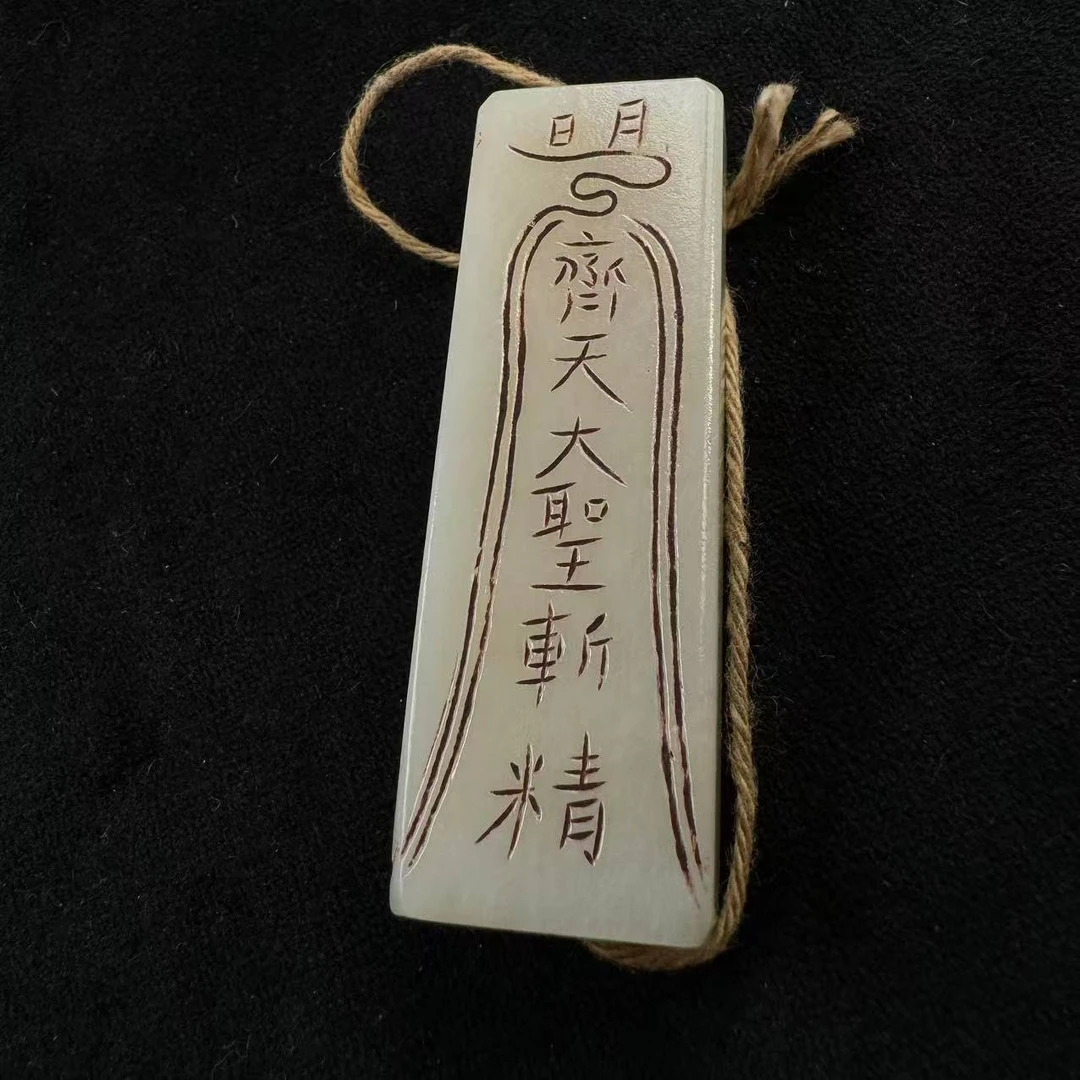 日月
齊天大聖斬精